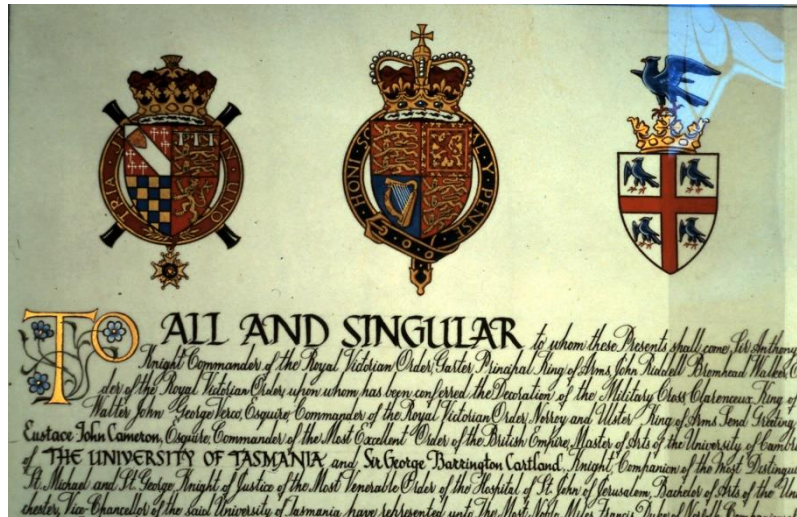 TRIA JUN IN UNO
HONI S Y PENSE
TO ALL AND SINGULAR to whom these Presents shall come, Sir Anthony
Knight Commander of the Royal Victorian Order, Garter Principal King of Arms, John Riddell Bromhead Walker, C
der of the Royal Victorian Order, upon whom has been conferred the Decoration of the Military Cross, Clarenceux King of
Walter John George Verco, Esquire, Commander of the Royal Victorian Order, Norroy and Ulster King of Arms Send Greeting
Eustace John Cameron, Esquire, Commander of the Most Excellent Order of the British Empire, Master of Arts of the University of Cambri
of THE UNIVERSITY OF TASMANIA and Sir George Barrington Cartland, Knight, Companion of the Most Distingui
St. Michael and St. George, Knight of Justice of the Most Venerable Order of the Hospital of St. John of Jerusalem, Bachelor of Arts of the Uni
chester, Vice-Chancellor of the said University of Tasmania have represented unto The Most Noble Miles Francis Duke of Norfolk